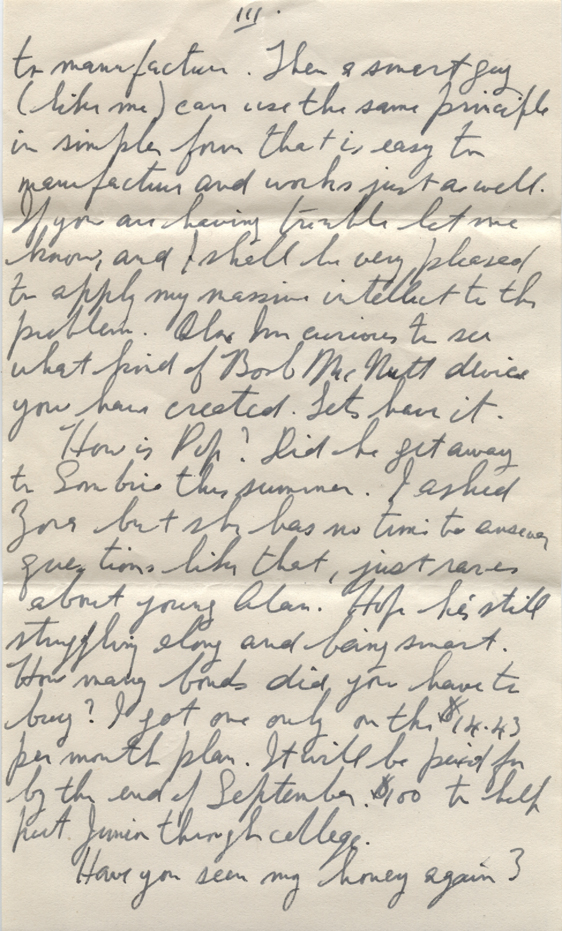 III.
to manufacture. Then a smart guy
(like me) can use the same principle
in simpler form that is easy to
manufacture and works just as well.
If you are having trouble let me
know, and I shall be very pleased
to apply my massive intellect to the
problem. Also I'm curious to see
what kind of Boob McNutt device
you have created. Lets have it.
How is Pop? Did he get away
to Sombra this summer. I asked
Zora but she has no time to answer
questions like that, just raves
about young Alan. Hope he's still
struggling along and being smart.
How many bonds did you have to
buy? I got one only on the $14.43
per month plan. It will be paid for
by the end of September. $100 to help
put Junior through college.
Have you seen my honey again?